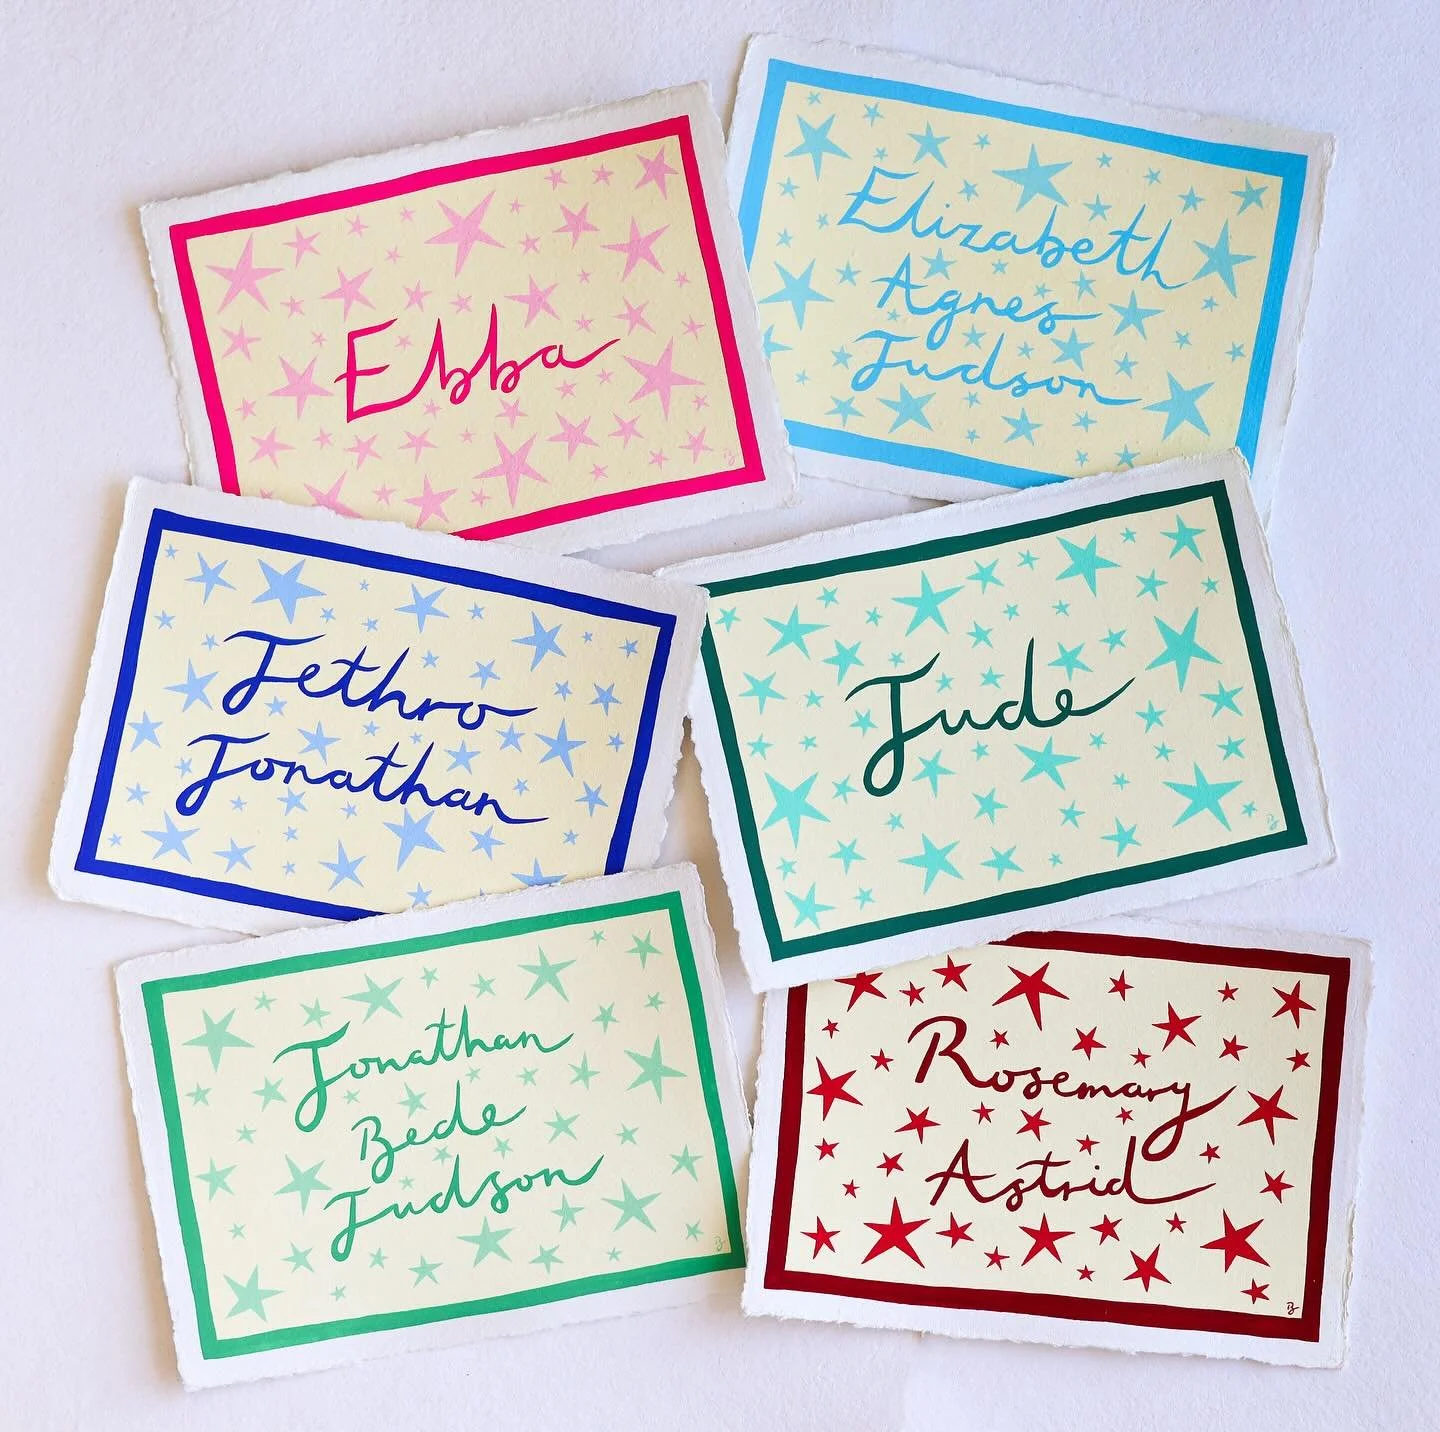 Ebba
Elizabeth
Agnes
Judson
Jethro
Jonathan
Jude
Jonathan
Bede
Judson
Rosemary
Astrid